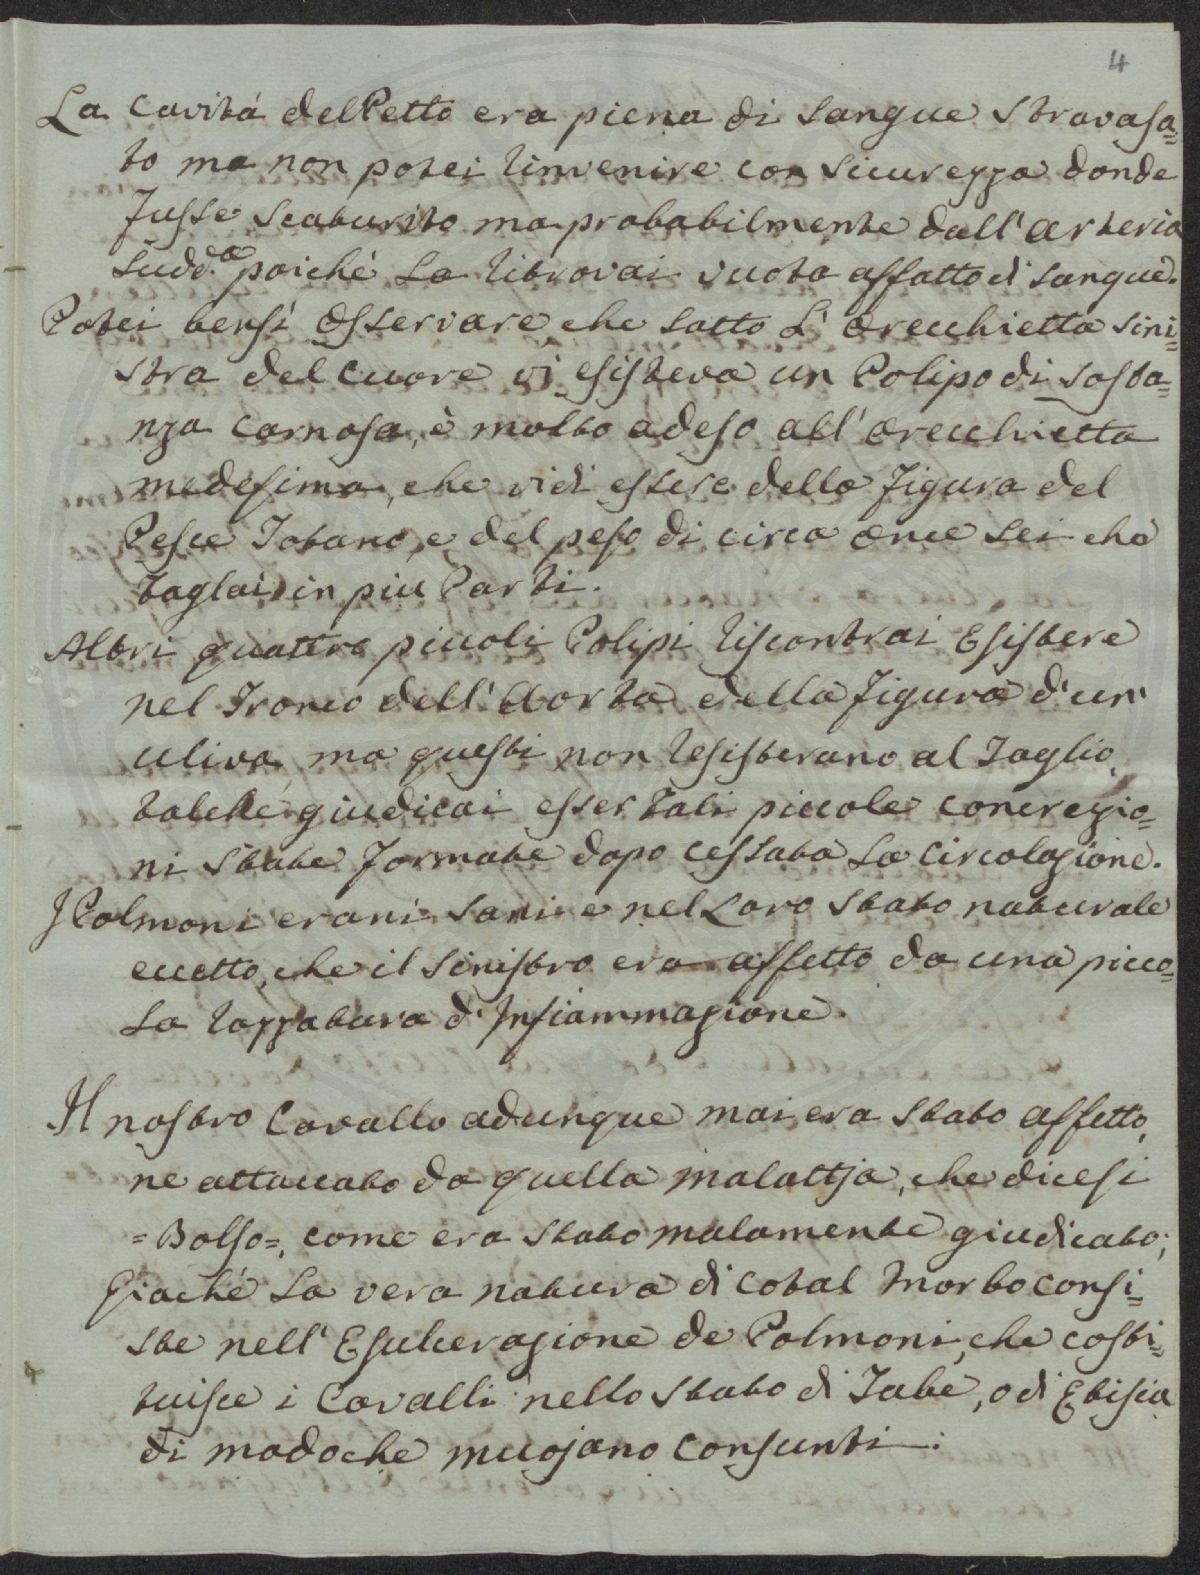 4
La Cavità del Petto era piena di Sangue Stravasa=
to ma non potei rinvenire con sicurezza donde
fusse scaturito ma probabilmente dall'arteria
sudd.a poiché la ritrovai vuota affatto di sangue.
Potei bensì osservare che sotto L'orecchietta sini=
stra del Cuore vi esisteva un Polipo di sosta=
nza carnosa, è molto adeso all'orecchietta
medesima, che vidi essere della figura del
Pesce Totano, e del peso di circa once sei che
tagliai in più Parti.
Altri quattro piccoli Polipi riscontrai Esistere
nel Tronco dell'Aorta della figura d'un'
uliva ma questi non resisterano al Taglio,
talché giudicai esser tali piccole concrezio=
ni state formate dopo cessata la Circolazione.
I Polmoni erani sani e nel Loro stato naturale
eccetto, che il sinistro era affetto da una picco=
la razzatura d'Infiammazione.
Il nostro Cavallo adunque mai era stato affetto,
ne attaccato da quella malattja, che dicesi
=Bolso=, come era stato malamente giudicato;
Giaché la vera natura di cotal morbo consi=
ste nell'Esulcerazione de Polmoni, che costi=
tuisce i Cavalli nello stato di Tabe, o di Etisia
di modo che muojano consunti.